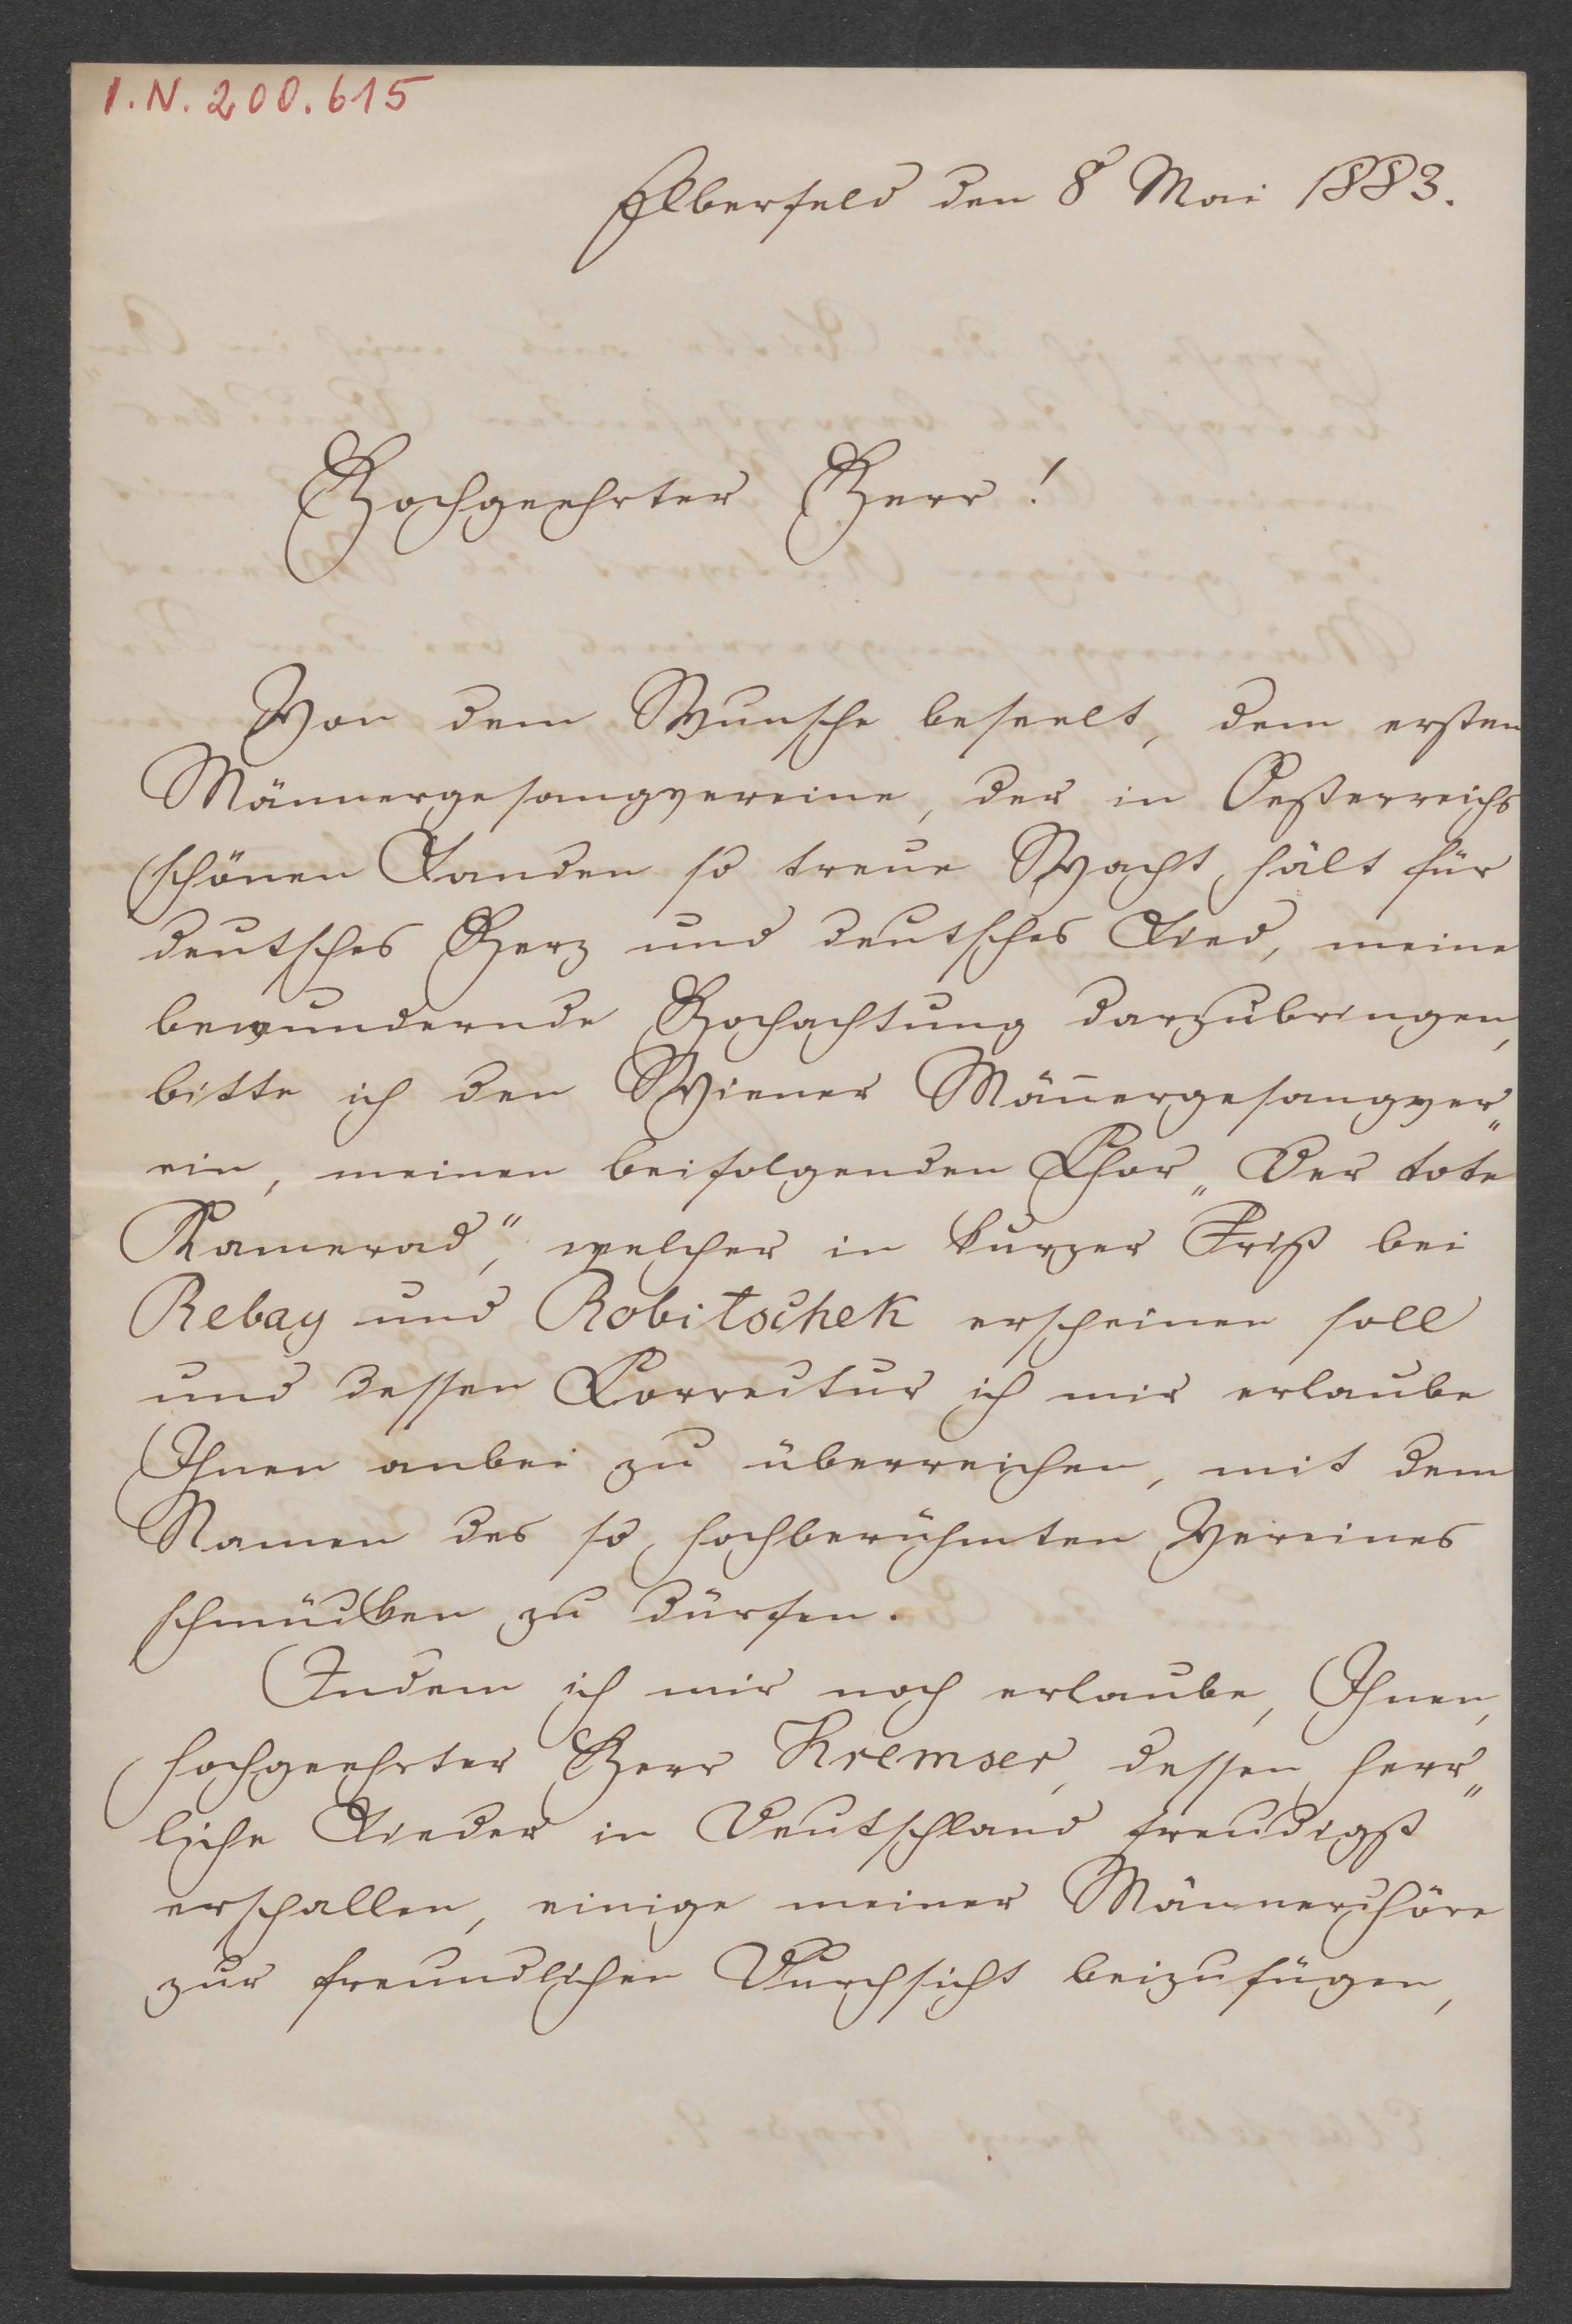 I.N. 200.615
Elberfeld den 8 Mai 1883.
Hochgeehrter Herr!
Von dem Wunsche beseelt, dem ersten
Männergesangvereine, der in Oesterreichs
schönen Landen so treue Wacht hält für
deutsches Herz und deutsches Lied, meine
bewundernde Hochachtung darzubringen,
bitte ich den Wiener Mañergesangver„
ein, meinen beifolgenden Chor „Der tote
Kamerad“, welcher in kurzer Frist bei
Rebay und Robitschek erscheinen soll
und dessen Correctur ich mir erlaube
Ihnen anbei zu überreichen, mit dem
Namen des so hochberühmten Vereines
schmücken zu dürfen.
Indem ich mir noch erlaube, Ihnen,
hochgeehrter Herr Kremser, dessen herr„
liche Lieder in Deutschland freudigst
erschallen, einige meiner Männerchöre
zur freundlichen Durchsicht beizufügen,